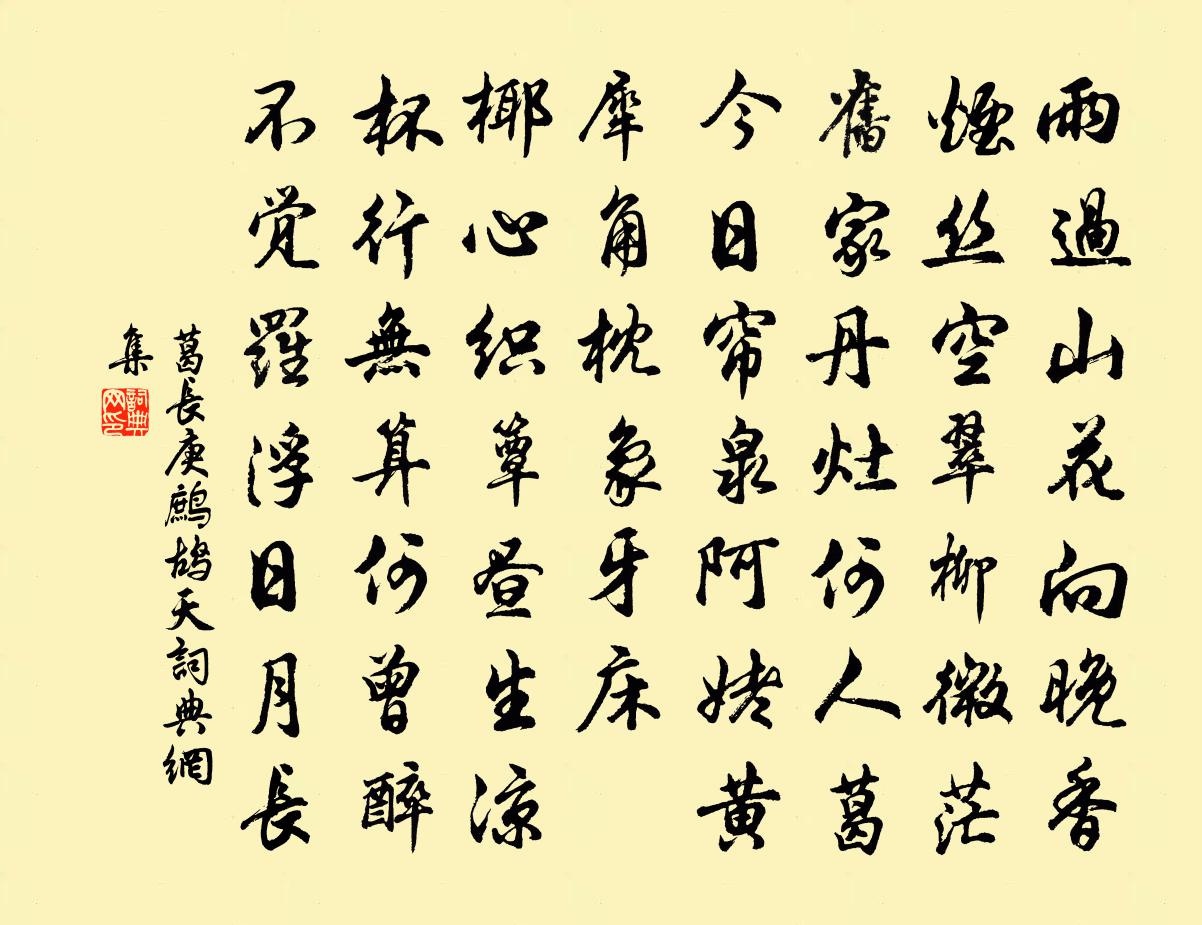 雨過山花向晚香
煙丝空翠柳微茫
舊家丹灶何人葛
今日帘泉阿姥黄
犀角枕象牙床
椰心织簟昼生涼
杯行無算何曾醉
不觉羅浮日月長
葛長庚鷓鴣天詞典網
集
詞典
网印